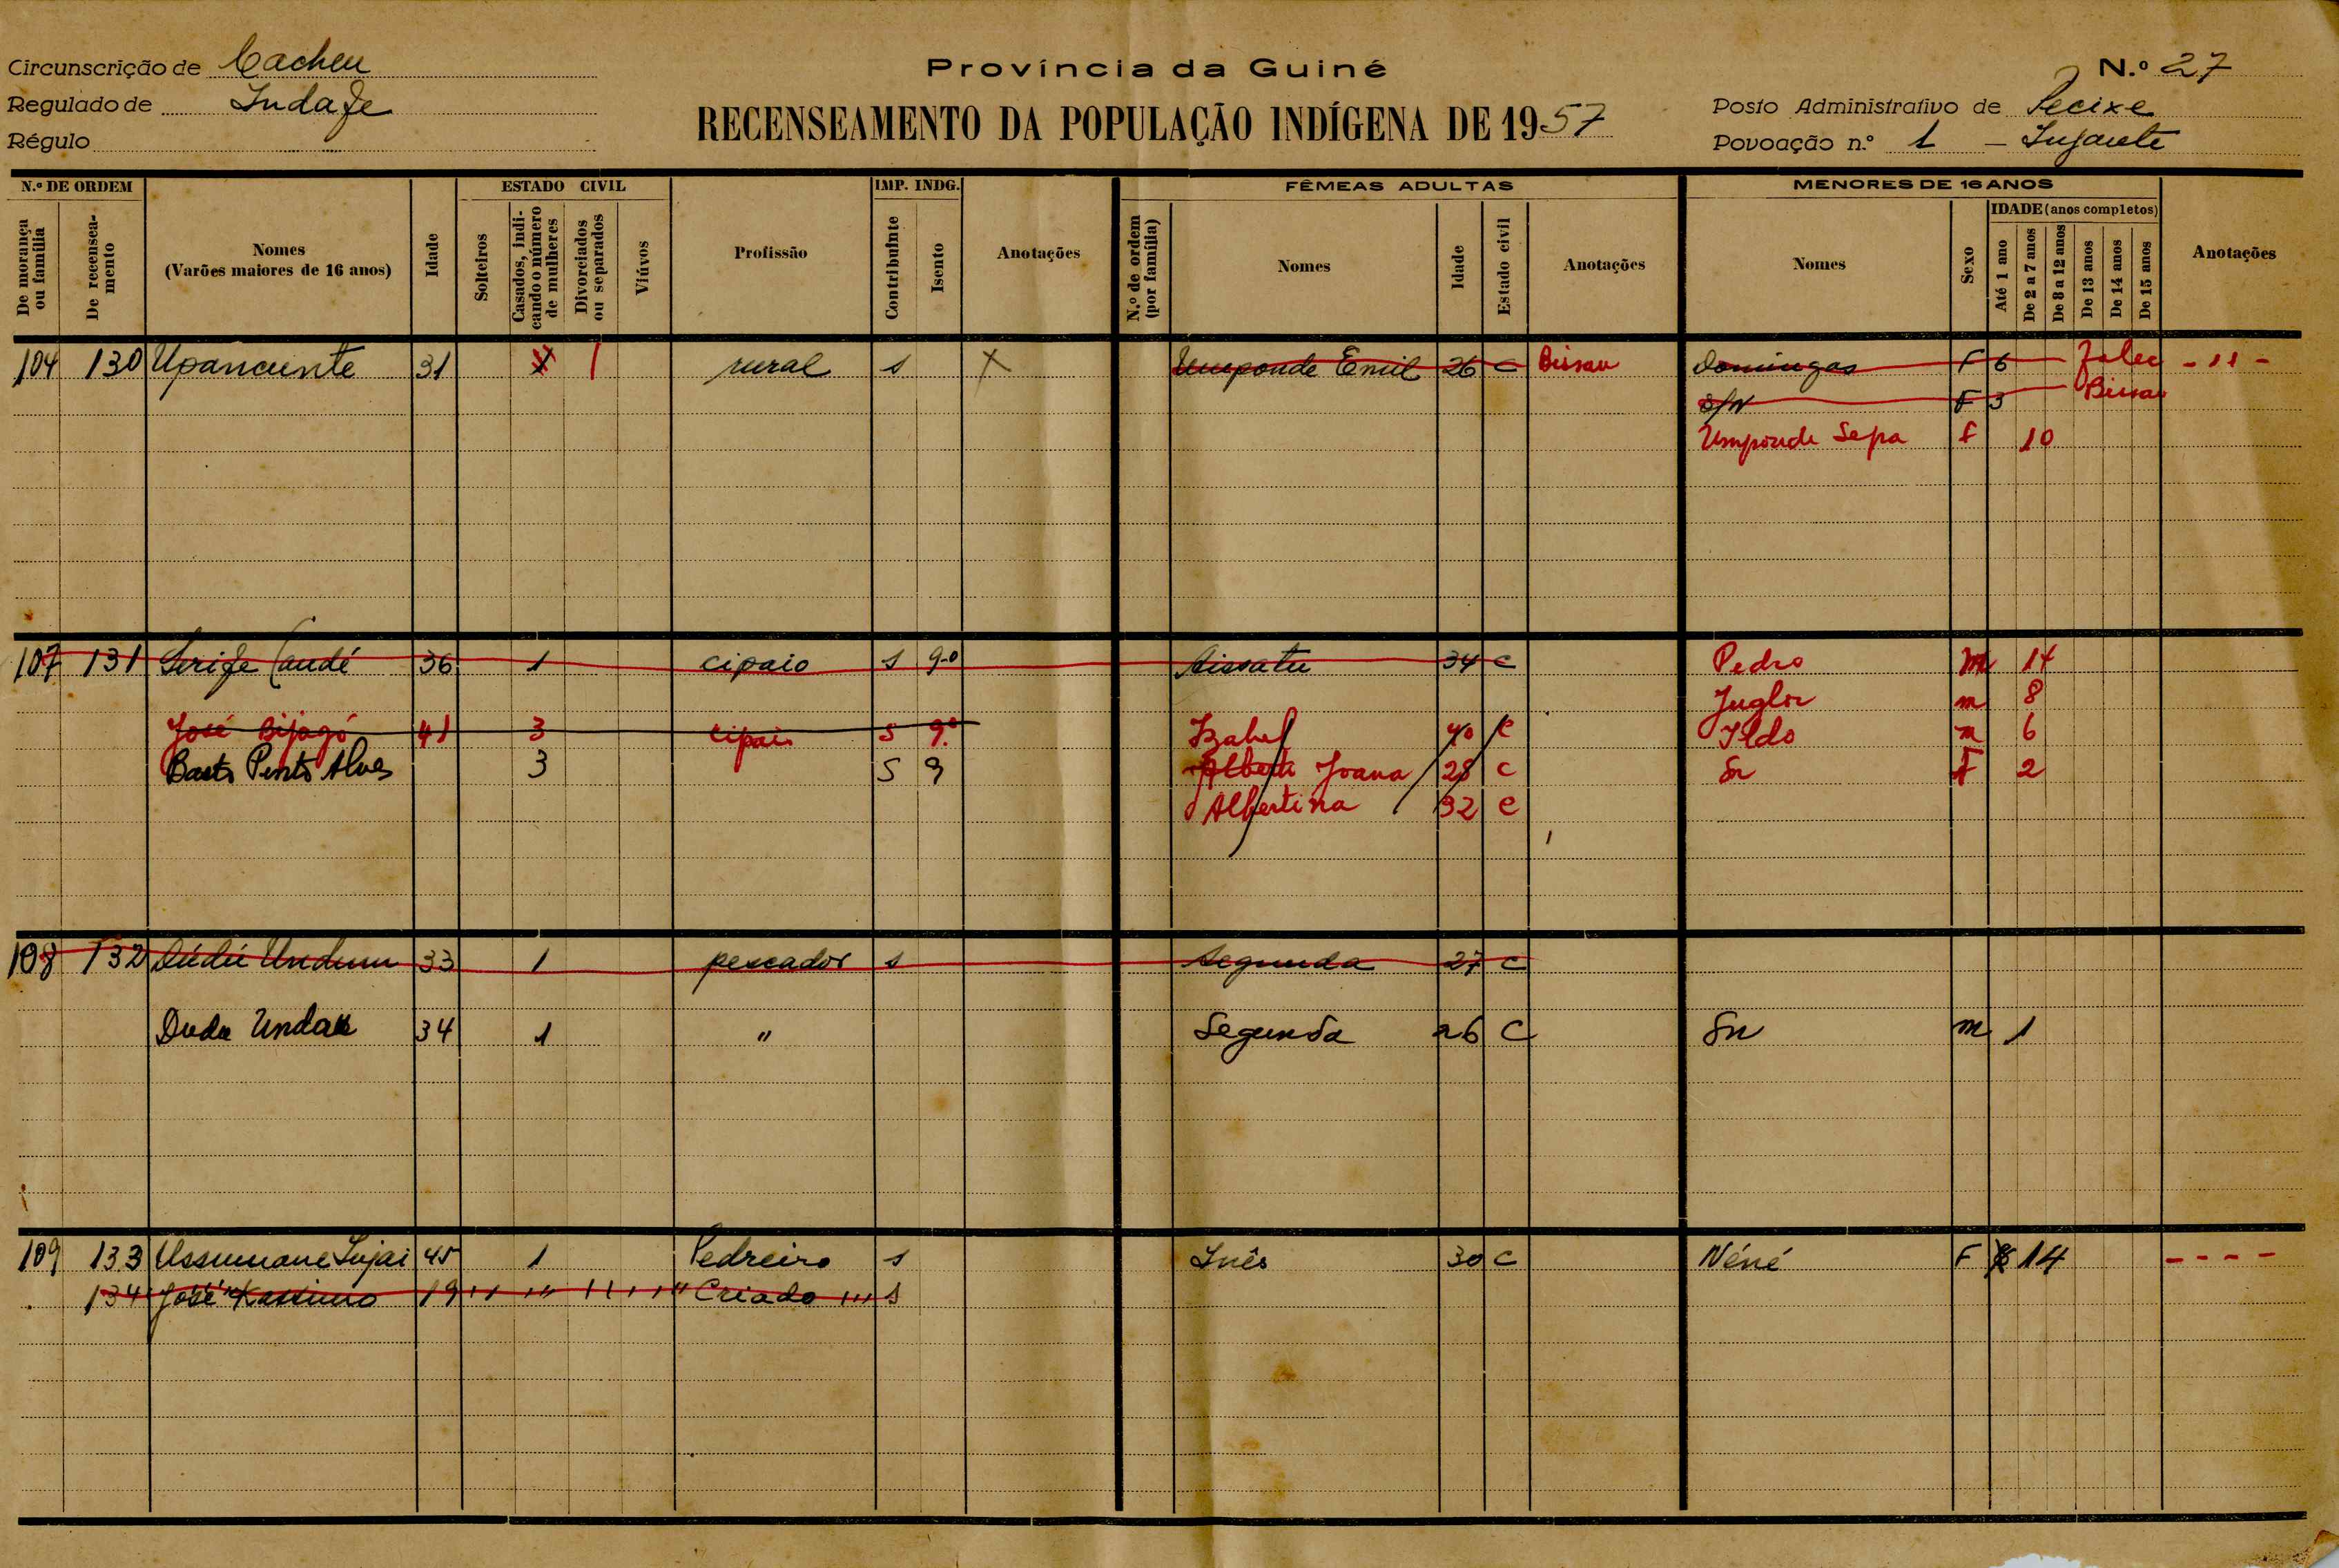 Província da Guiné
Circunscrição de Cacheu
N.º 27
Regulado de Indafe
RECENSEAMENTO DA POPULAÇÃO INDÍGENA DE 1957
Posto Administrativo de Pecixe
Régulo
Povoação n.º 1 –
N.º DE ORDEM
ESTADO CIVIL
IMP. INDG.
FÊMEAS ADULTAS
MENORES DE 16 ANOS
De morança ou família
De recenseamento
Nomes
(Varões maiores de 16 anos)
Idade
Solteiros
Casados, indicando o número de mulheres
Divorciados ou separados
Viúvos
Profissão
Contribuinte
Isento
Anotações
N.º de ordem (por família)
Nomes
Idade
Estado civil
Anotações
Nomes
Sexo
IDADE (anos completos)
Até 1 ano
De 2 a 7 anos
De 8 a 12 anos
De 13 anos
De 14 anos
De 15 anos
Anotações
104 130 Upancunte 31 X 1 rural s X Umponde Emil 26 C Bissau Domingas F 6
S/N F 3 Bissau
Umponde Sepa F 10
107 131 Serife Candé 36 1 cipaio s 9-º Aissatu 34 C Pedro m 14
m 8
José Bijagó 41 3 cipaio s 9.º Izabel 40 C Ildo m 6
Pinto Alves 3 S 9 Joana 28 C Sn F 2
Albertina 32 C
108 132 Dúdú 33 1 pescador s Segunda 27 C
Dudu 34 1 " Segunda 26 C Sn m 1
109 133 Ussumane Injai 45 1 Pedreiro s Inês 30 C Néné F 14 - - - -
134 José Kassimo 19 Criado s